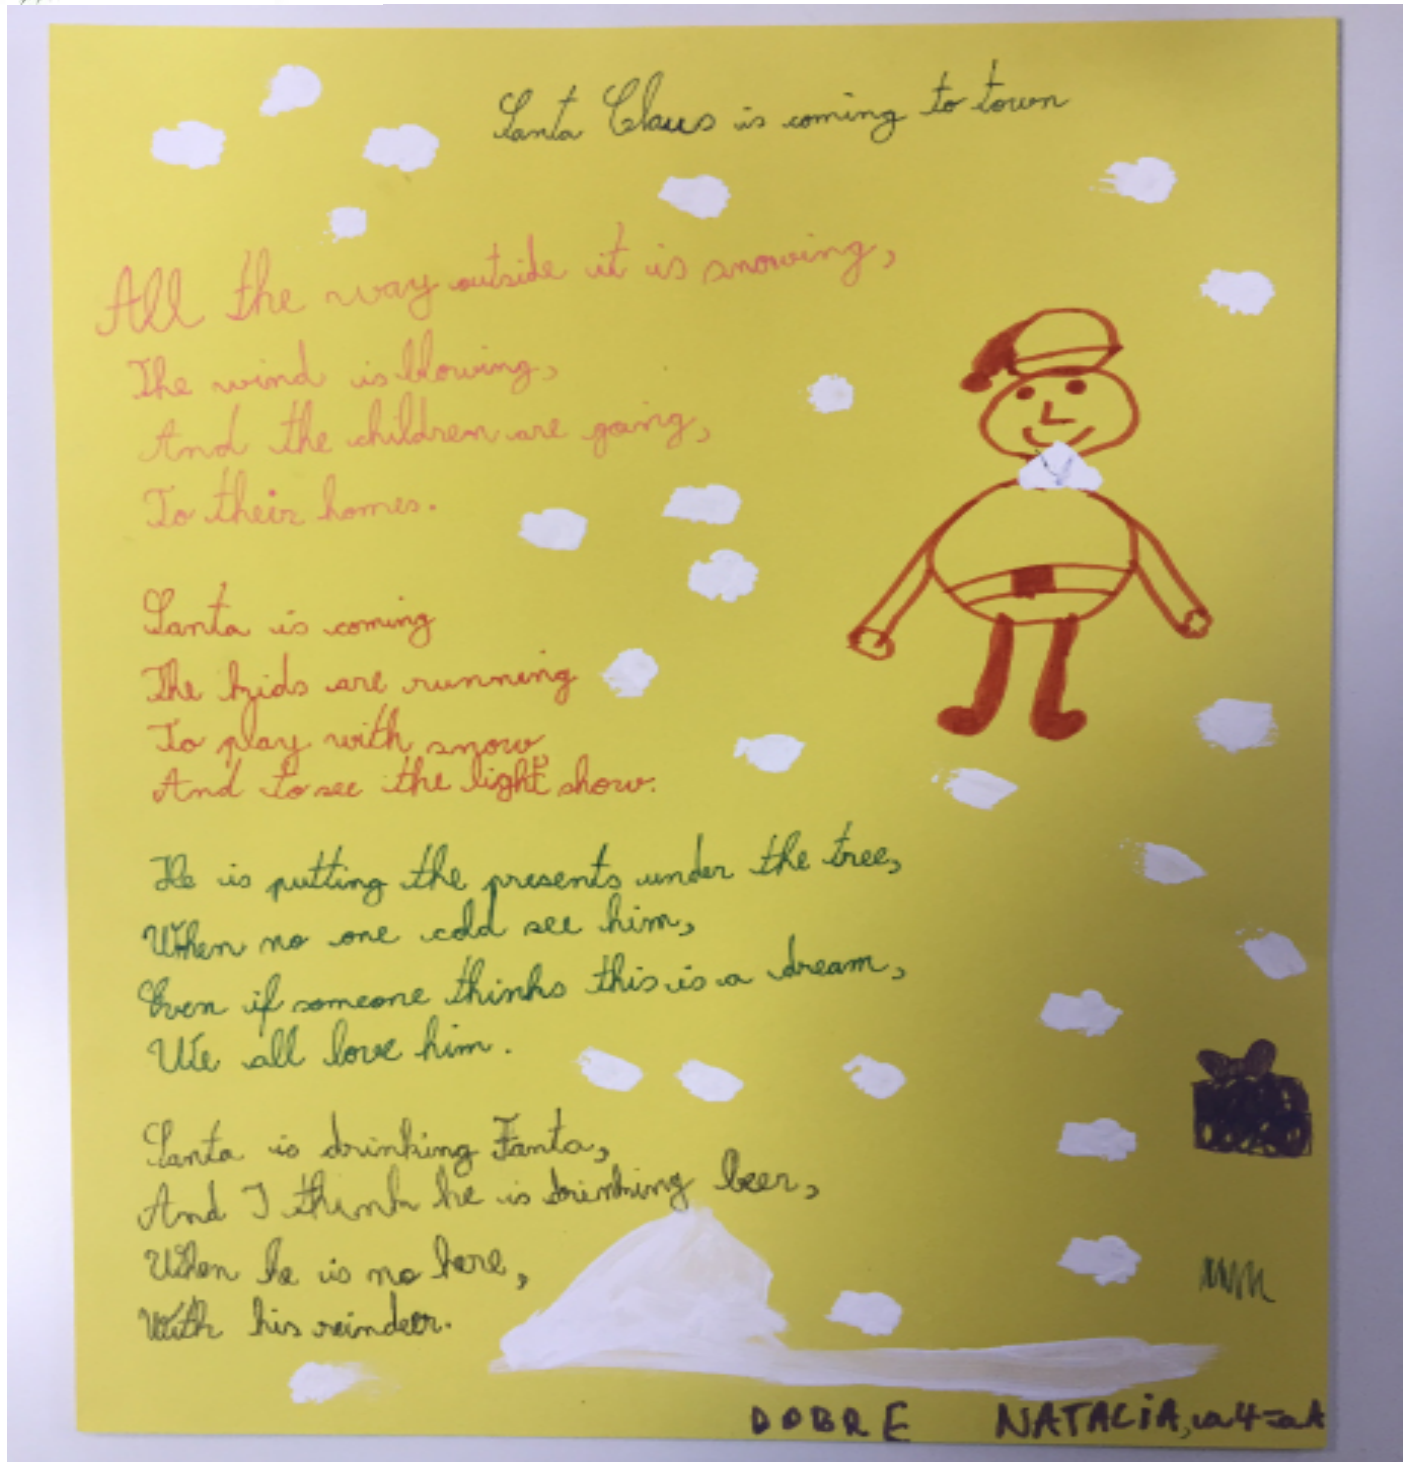 Santa Claus is coming to town
All the way outside it is snowing,
The wind is blowing,
And the children are going,
To their homes.
Santa is coming
The kids are running
To play with snow
And to see the light show.
He is putting the presents under the tree,
When no one cold see him,
Even if someone thinks this is a dream,
We all love him.
Santa is drinking Fanta,
And I think he is drinking beer,
When he is no here,
With his reindeer.
DOBRE NATALIA, a 4-a A